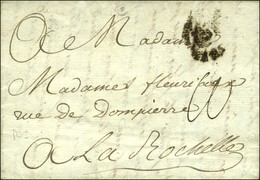 A Madame
Madame fleuriseau
rue de Dompierre
A La Rochelle